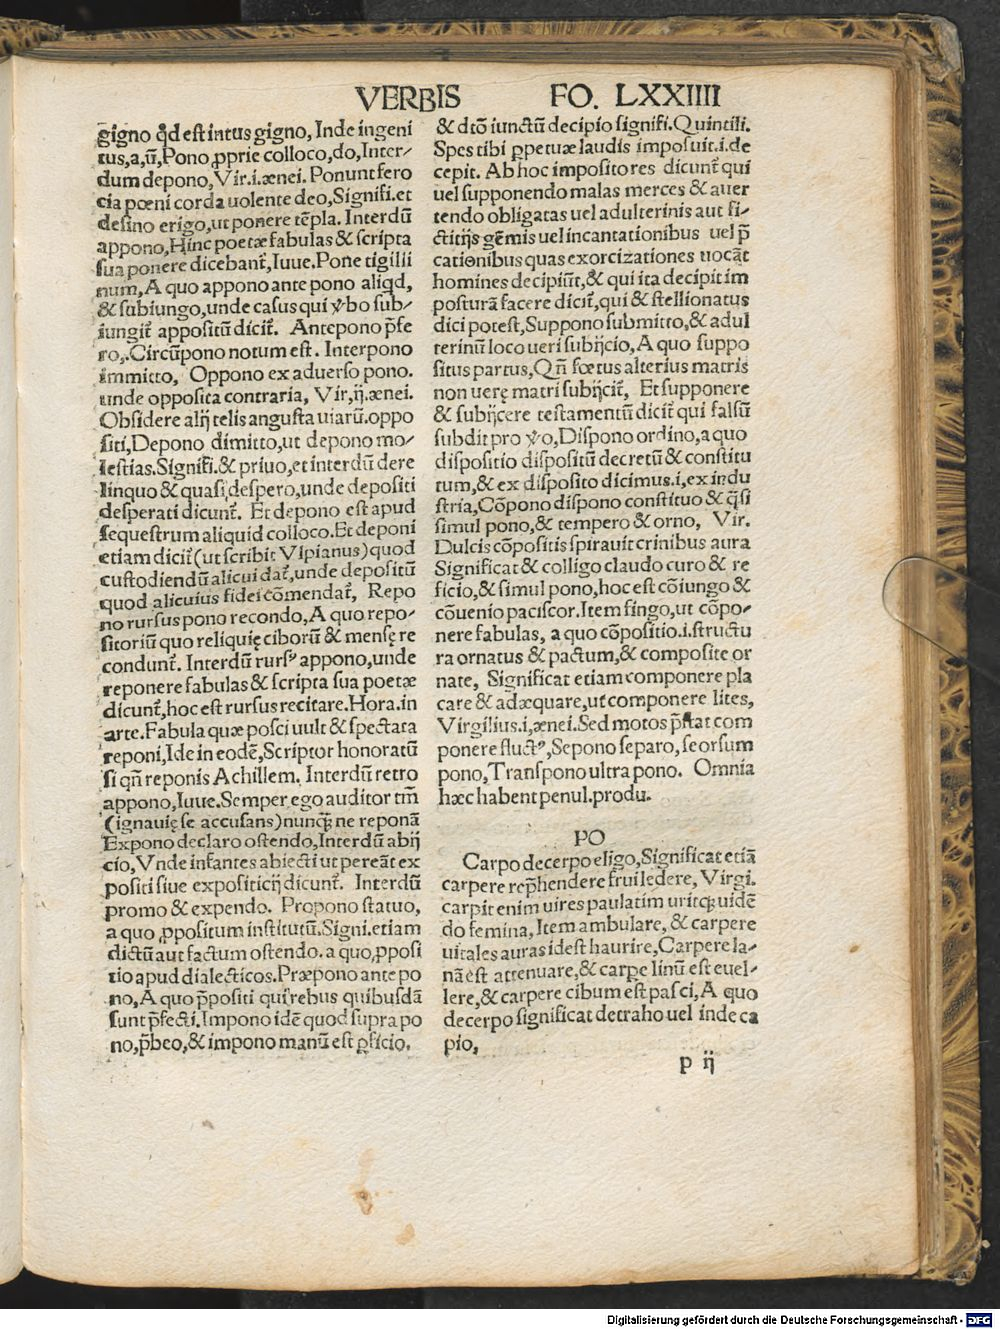 VERBIS FO. LXXIIII
gigno qđ est intus gigno, Inde ingeni
tus,a,ū, Pono ꝓprie colloco,do, Inter-
dum depono, Vir.i.ænei. Ponunt fero
cia pœni corda uolente deo, Signifi.et
desino erigo, ut ponere tēpla. Interdū
appono, Hinc poetæ fabulas & scripta
sua ponere dicebant̄, Iuue. Pone tigilli
num, A quo appono ante pono aliqd,
& subiungo, unde casus qui ꝟbo sub-
iungit̄ appositū dicit̄. Antepono p̄fe
ro,. Circūpono notum est. Interpono
immitto, Oppono ex aduerso pono.
unde opposita contraria, Vir,ij.ænei.
Obsidere alij telis angusta uiarū.oppo
siti, Depono dimitto, ut depono mo-
lestias. Signifi.& priuo, et interdū dere
linquo & quasi despero, unde depositi
desperati dicunt̄. Et depono est apud
sequestrum aliquid colloco. Et deponi
etiam dicit̄ (ut scribit Vlpianus) quod
custodiendū alicui dat̄, unde depositū
quod alicuius fidei cōmendat̄, Repo
no rursus pono recondo, A quo repo-
sitoriū quo reliquię ciborū & mensę re
condunt̄. Interdū rursꝰ appono, unde
reponere fabulas & scripta sua poetæ
dicunt̄, hoc est rursus recitare. Hora.in
arte. Fabula quæ posci uult & spectata
reponi, Ide in eodē, Scriptor honoratū
si qn̄ reponis Achillem. Interdū retro
appono, Iuue. Semper ego auditor tm̄
(ignauię se accusans) nunqꝫ ne reponā
Expono declaro ostendo, Interdū abij
cio, Vnde infantes abiecti ut pereāt ex
positi siue expositicij dicunt̄. Interdū
promo & expendo. Propono statuo,
a quo ꝓpositum institutū. Signi.etiam
dictū aut factum ostendo. a quo, ꝓposi
tio apud dialecticos. Præpono ante po
no, A quo p̄positi qui rebus quibusdā
sunt p̄fecti. Impono idē quod supra po
no, p̄beo, & impono manū est ꝑficio,
& dtō iunctū decipio signifi. Quintili.
Spes tibi ꝑpetuæ laudis imposuit.i.de
cepit. Ab hoc impositores dicunt̄ qui
uel supponendo malas merces & auer
tendo obligatas uel adulterinis aut fi-
ctitijs gēmis uel incantationibus uel p̄
cationibus quas exorcizationes uocāt
homines decipiūt, & qui ita decipit im
posturā facere dicit̄, qui & stellionatus
dici potest, Suppono submitto, & adul
terinū loco ueri subijcio, A quo suppo
situs partus, Qn̄ fœtus alterius matris
non uerę matri subijcit̄, Et supponere
& subijcere testamentū dicit̄ qui falsū
subdit pro ꝟo, Dispono ordino, a quo
dispositio dispositū decretū & constitu
tum, & ex disposito dicimus.i,ex indu
stria, Cōpono dispono constituo & q̄si
simul pono, & tempero & orno, Vir.
Dulcis cōpositis spirauit crinibus aura
Significat & colligo claudo curo & re
ficio, & simul pono, hoc est cōiungo &
cōuenio paciscor. Item fingo, ut cōpo-
nere fabulas, a quo cōpositio.i.structu
ra ornatus & pactum, & composite or
nate, Significat etiam componere pla
care & adæquare, ut componere lites,
Virgilius.i,ænei. Sed motos p̄stat com
ponere fluctꝰ, Sepono separo, seorsum
pono, Transpono ultra pono. Omnia
hæc habent penul.produ.
PO
Carpo decerpo eligo, Significat etiā
carpere rep̄hendere frui lędere, Virgi.
carpit enim uires paulatim uritqꝫ uidē
do femina, Item ambulare, & carpere
uitales auras idest haurire, Carpere la-
nā est attenuare, & carpe linū est euel-
lere, & carpere cibum est pasci, A quo
decerpo significat detraho uel inde ca
pio,
p ij
Digitalisierung gefördert durch die Deutsche Forschungsgemeinschaft - DFG